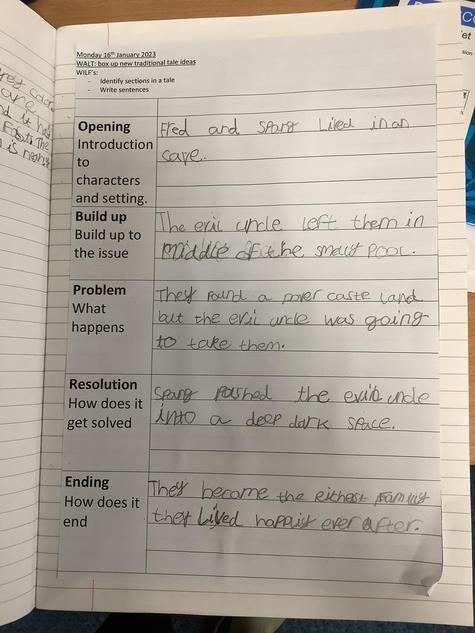 Monday 16th January 2023
WALT: box up new traditional tale ideas
WILF's:
- Identify sections in a tale
- Write sentences
Opening
Introduction
to
characters
and setting.
Fred and Sparg Lived in an
cave.
Build up
Build up to
the issue
The evil uncle left them in
Middle of the smally Pool.
Problem
What
happens
They found a caste land
but the evil uncle was going
to take them.
Resolution
How does it
get solved
Sparg pashed the evil uncle
into a deep dark space.
Ending
How does it
end
They became the family
they Lived happist ever after.